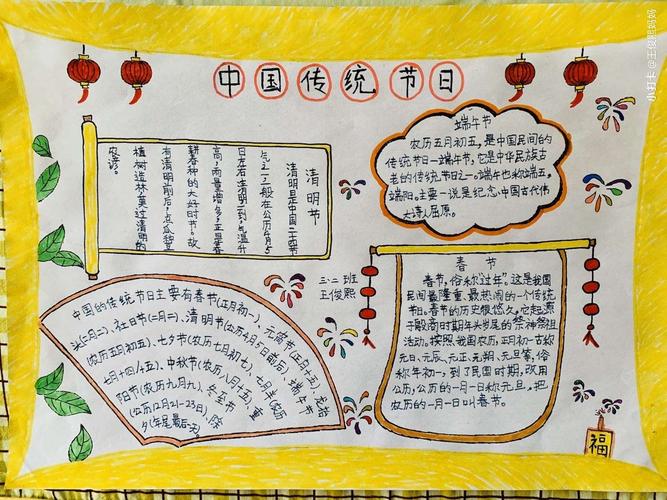 中国传统节日
清明节
清明是中国二十四节
气之一,一般在公历4月5
日左右,清明一到,气温升
高,雨量增多,正是春
耕春种的大好时节。故
有清明前后,点瓜种豆
植树造林,莫过清明的
农谚。
端午节
农历五月初五,是中国民间的
传统节日—端午节,它是中华民族古
老的传统节日之一。端午也称端五,
端阳。主要一说是纪念中国古代伟
大诗人屈原。
三.二班
王俊熙
中国的传统节日主要有春节(正月初一)、元宵节(正月十五)、龙抬
头(二月二)、社日节(二月二)、清明节(公历4月5日前后)、端午节
(农历五月初五)、七夕节(农历七月初七)、七月半(农历
七月十四/十五)、中秋节(农历八月十五)、重
阳节(农历九月九)、冬至节
(公历12月21-23日)、除
夕(年尾最后一天)。
春节
春节,俗称“过年”,这是我国
民间最隆重、最热闹的一个传统
节日。春节的历史很悠久,它起源
于殷商时期年头岁尾的祭神祭祖
活动。按照我国农历,正月初一古称
元日、元辰、元正、元朔、元旦等,俗
称年初一,到了民国时期,改用
公历,公历的一月一日称元旦,把
农历的一月一日叫春节。
福
小打卡@王俊熙妈妈